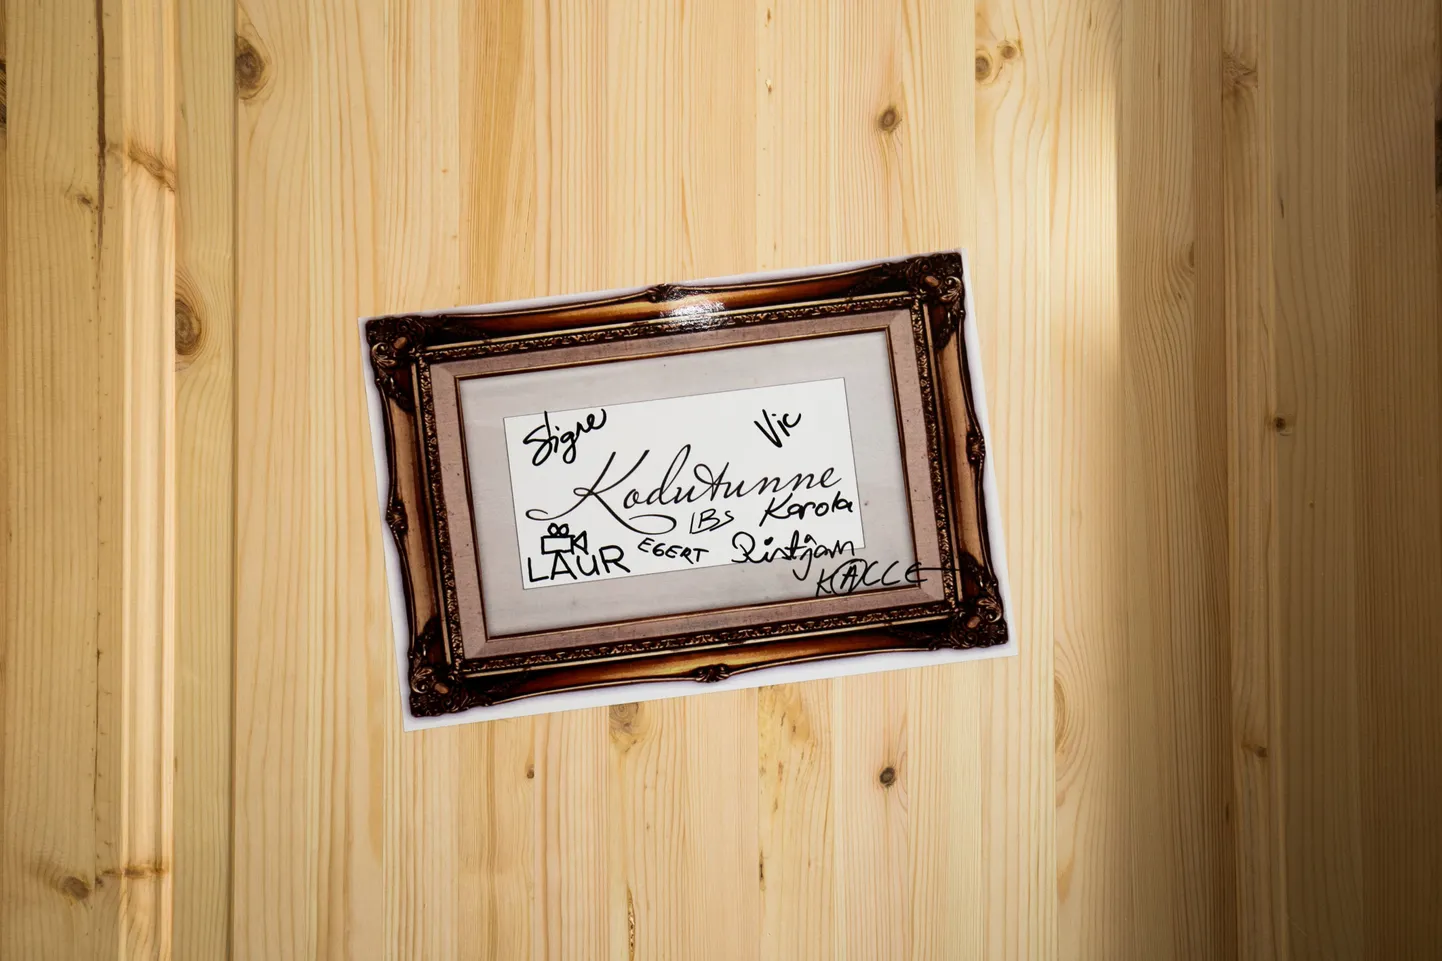 Signe Vic
Kodutunne
LBS Karola
LAUR EGERT Ristjan
KALLE